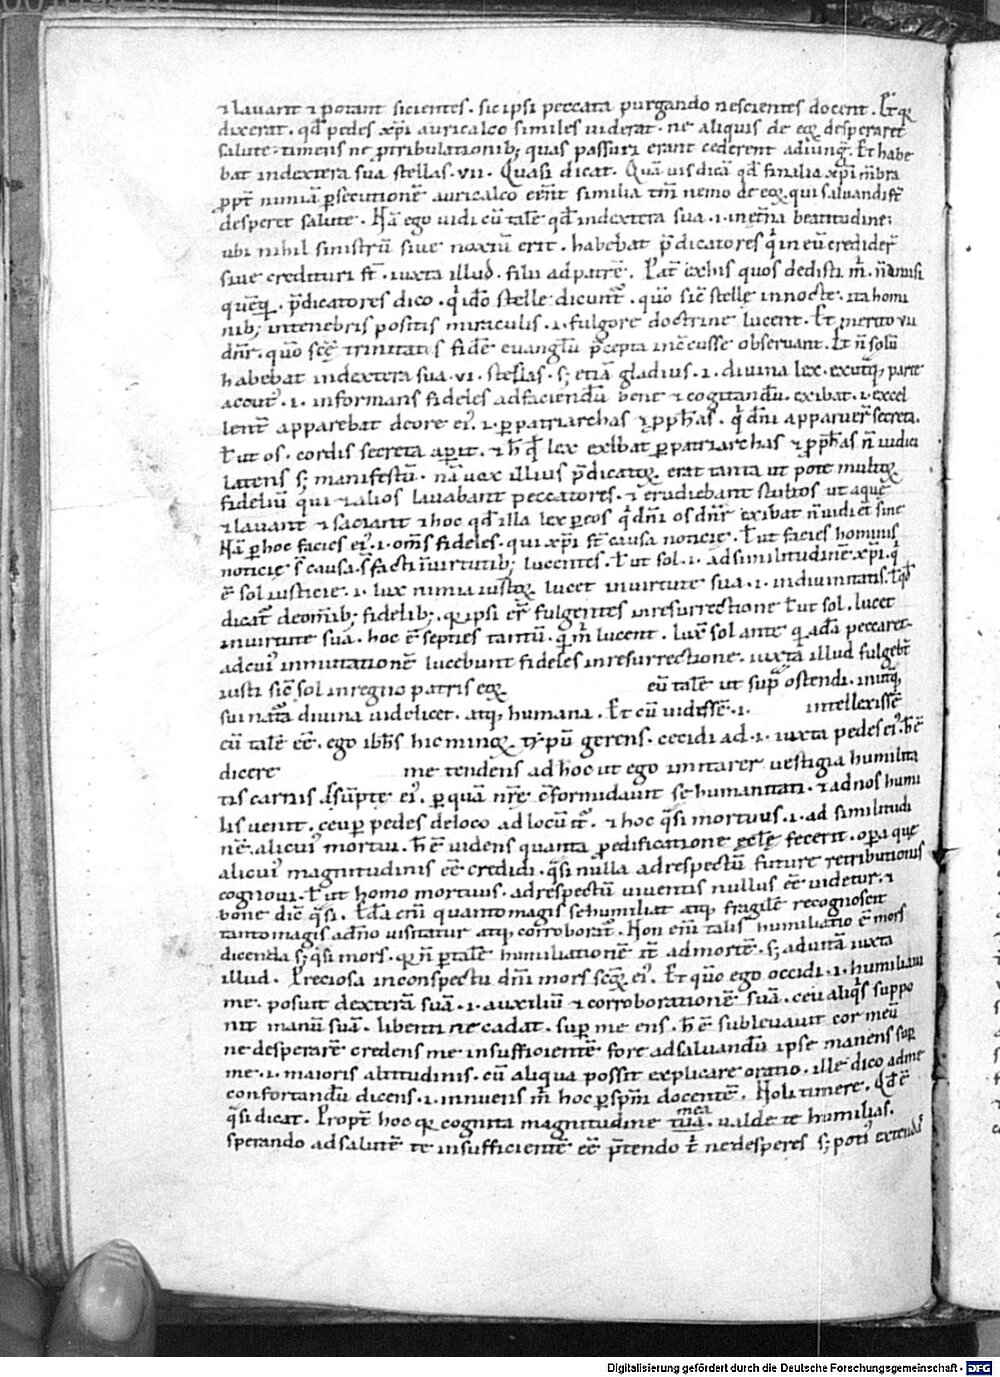 ⁊ lauant ⁊ potant sicientes. sic ipsi peccata purgando nescientes docent. Et qꝛ
dixerat. qđ pedes xp̄i auricalco similes uiderat. ne aliquis de eoꝝ desperaret
salute. timens ne ꝓ tribulationib; quas passuri erant cederent adiungit. Et habe
bat indextera sua stellas. vii. Quasi dicat. Quāuis dicā qđ finalia xp̄i mēbra
ꝓpt̄ nimiā ꝑsecutionē auricalco eēnt similia tm̄ nemo de eoꝝ qui saluandi st̄
desperet salute. Nā ego uidi eū talē qđ indextera sua .i. in et̄na beatitudine;
ubi nihil sinistrū siue noxiū erit. habebat p̄dicatores qͥ in eū credider̄
siue credituri st̄. iuxta illud. filii ad patrē. Pat̄ ex his quos dedisti m̄. n̄ amisi
quēqͣ. p̄dicatores dico. qͥ idō stelle dicunt̄. quō sic̄ stelle in nocte. ita homi
nib; intenebris positis miraculis .i. fulgore doctrine lucent. Et merito vii
dn̄r. quō scē trinitatis fidē euangl̄ii p̄cepta inc̄cusse obseruant. Et n̄ solū
habebat indextera sua .vi. stellas. s; etiā gladius .i. diuina lex. ex utraq; parte
acut̄ .i. informans fideles adfaciendū bene ⁊ cogitandū. exibat .i. excel
lent̄ apparebat de ore ei᷒ .i. ꝑ patriarchas ⁊ ꝓph̄as. qͥ dn̄i apparuer̄ secreta.
ł ut os. cordis secreta aperit. ⁊ h̄ qđ lex exibat ꝑ patriarchas ⁊ ꝓph̄as n̄ uidi
latens s; manifestū. nā uox illius p̄dicatoꝝ. erat tanta ut pote multoꝝ
fideliū qui ⁊ alios lauabant peccatores. ⁊ erudiebant stultos ut aque
⁊ lauant ⁊ saciant ⁊ hoc qđ illa lex ꝑ eos qͥ dn̄i os dn̄r exibat n̄ uidi et sine
Nā ꝑ hoc facies ei᷒ .i. om̄s fideles. qui xp̄i st̄ causa noticie. ł ut facies hominis
noticie ē causa. s̄ facti in uirtutib; lucentes. ł ut sol .i. adsimilitudinē xp̄i. qͥ
ē sol iusticie .i. lux nimia iustoꝝ lucet inuirtute sua .i. indiuinitatis. ł qđ
dicat̄ de om̄ib; fidelib;. qꝛ ipsi er̄ fulgentes inresurrectione ł ut sol. lucet
inuirtute sua. hoc ē septies tantū. qͣm̄ lucent. lux sol ante qͣ adā peccaret
ad cui᷒ inmutationē lucebunt fideles inresurrectione. iuxta illud fulgebt̄
iusti sic̄ sol inregno patris eoꝝ eū talē ut supͣ ostendi. inutͣq;
sui natͣa diuina uidelicet. atq; humana. Et cū uidissē .i. intellexissē
eū talē eē. ego ioħs hic minoꝝ tipū gerens. cecidi ad .i. iuxta pedes ei᷒. h̄ ē
dicere me tendens ad hoc ut ego imitarer uestigia humilita
tis carnis assūpte ei᷒. ꝑ quā nr̄e c̄formidauit se humanitati. ⁊ ad nos humi
lis uenit. ceu ꝑ pedes deloco ad locū it̄. ⁊ hoc qͣsi mortuus .i. ad similitudi
nē. alicui᷒ mortui. h̄ ē uidens quanta ꝓ edificatione eccl̄e fecerit. opera que
alicui᷒ magnitudinis eē credidi. qͣsi nulla adrespectū future retributionis
cognoui. ł ut homo mortuus. adrespectū uiuentis nullus eē uidetur. ⁊
bone dic̄ qͣsi. Eccl̄a eni quanto magis se humiliat atq; fragilē recognoscit
tanto magis a dn̄o uisitatur atq; corroborat̄. Non eni talis humiliatio ē mors
dicenda s; qͣsi mors. qꝛ n̄ ꝑ talē humiliationē it̄ ad mortē. s; ad uitā iuxta
illud. Preciosa inconspectu dn̄i mors scōꝝ ei᷒. Et quō ego cecidi .i. humiliaui
me. posuit dexterā suā .i. auxiliū ⁊ corroborationē suā. ceu aliqͥs suppo
nit manū suā. libenti ne cadat. super me ens. h̄ ē subleuauit cor meū
ne desperarē credens me insufficientē fore ad saluandū ipse manens sup̄
me .i. maioris altitudinis. cū aliqua possit explicare oratio. ille dico ad me
confortandū dicens .i. innuens m̄ hoc ꝑ spm̄ docentē. Noli timere. Qđ ē
qͣsi dicat. Propt̄ hoc qꝛ cognita magnitudine tua. ualde te humilias.
mea
sperando ad salutē te insufficientē eē p̄tendo t̄ ne desperes s; poti᷒ extende
Digitalisierung gefördert durch die Deutsche Forschungsgemeinschaft - DFG